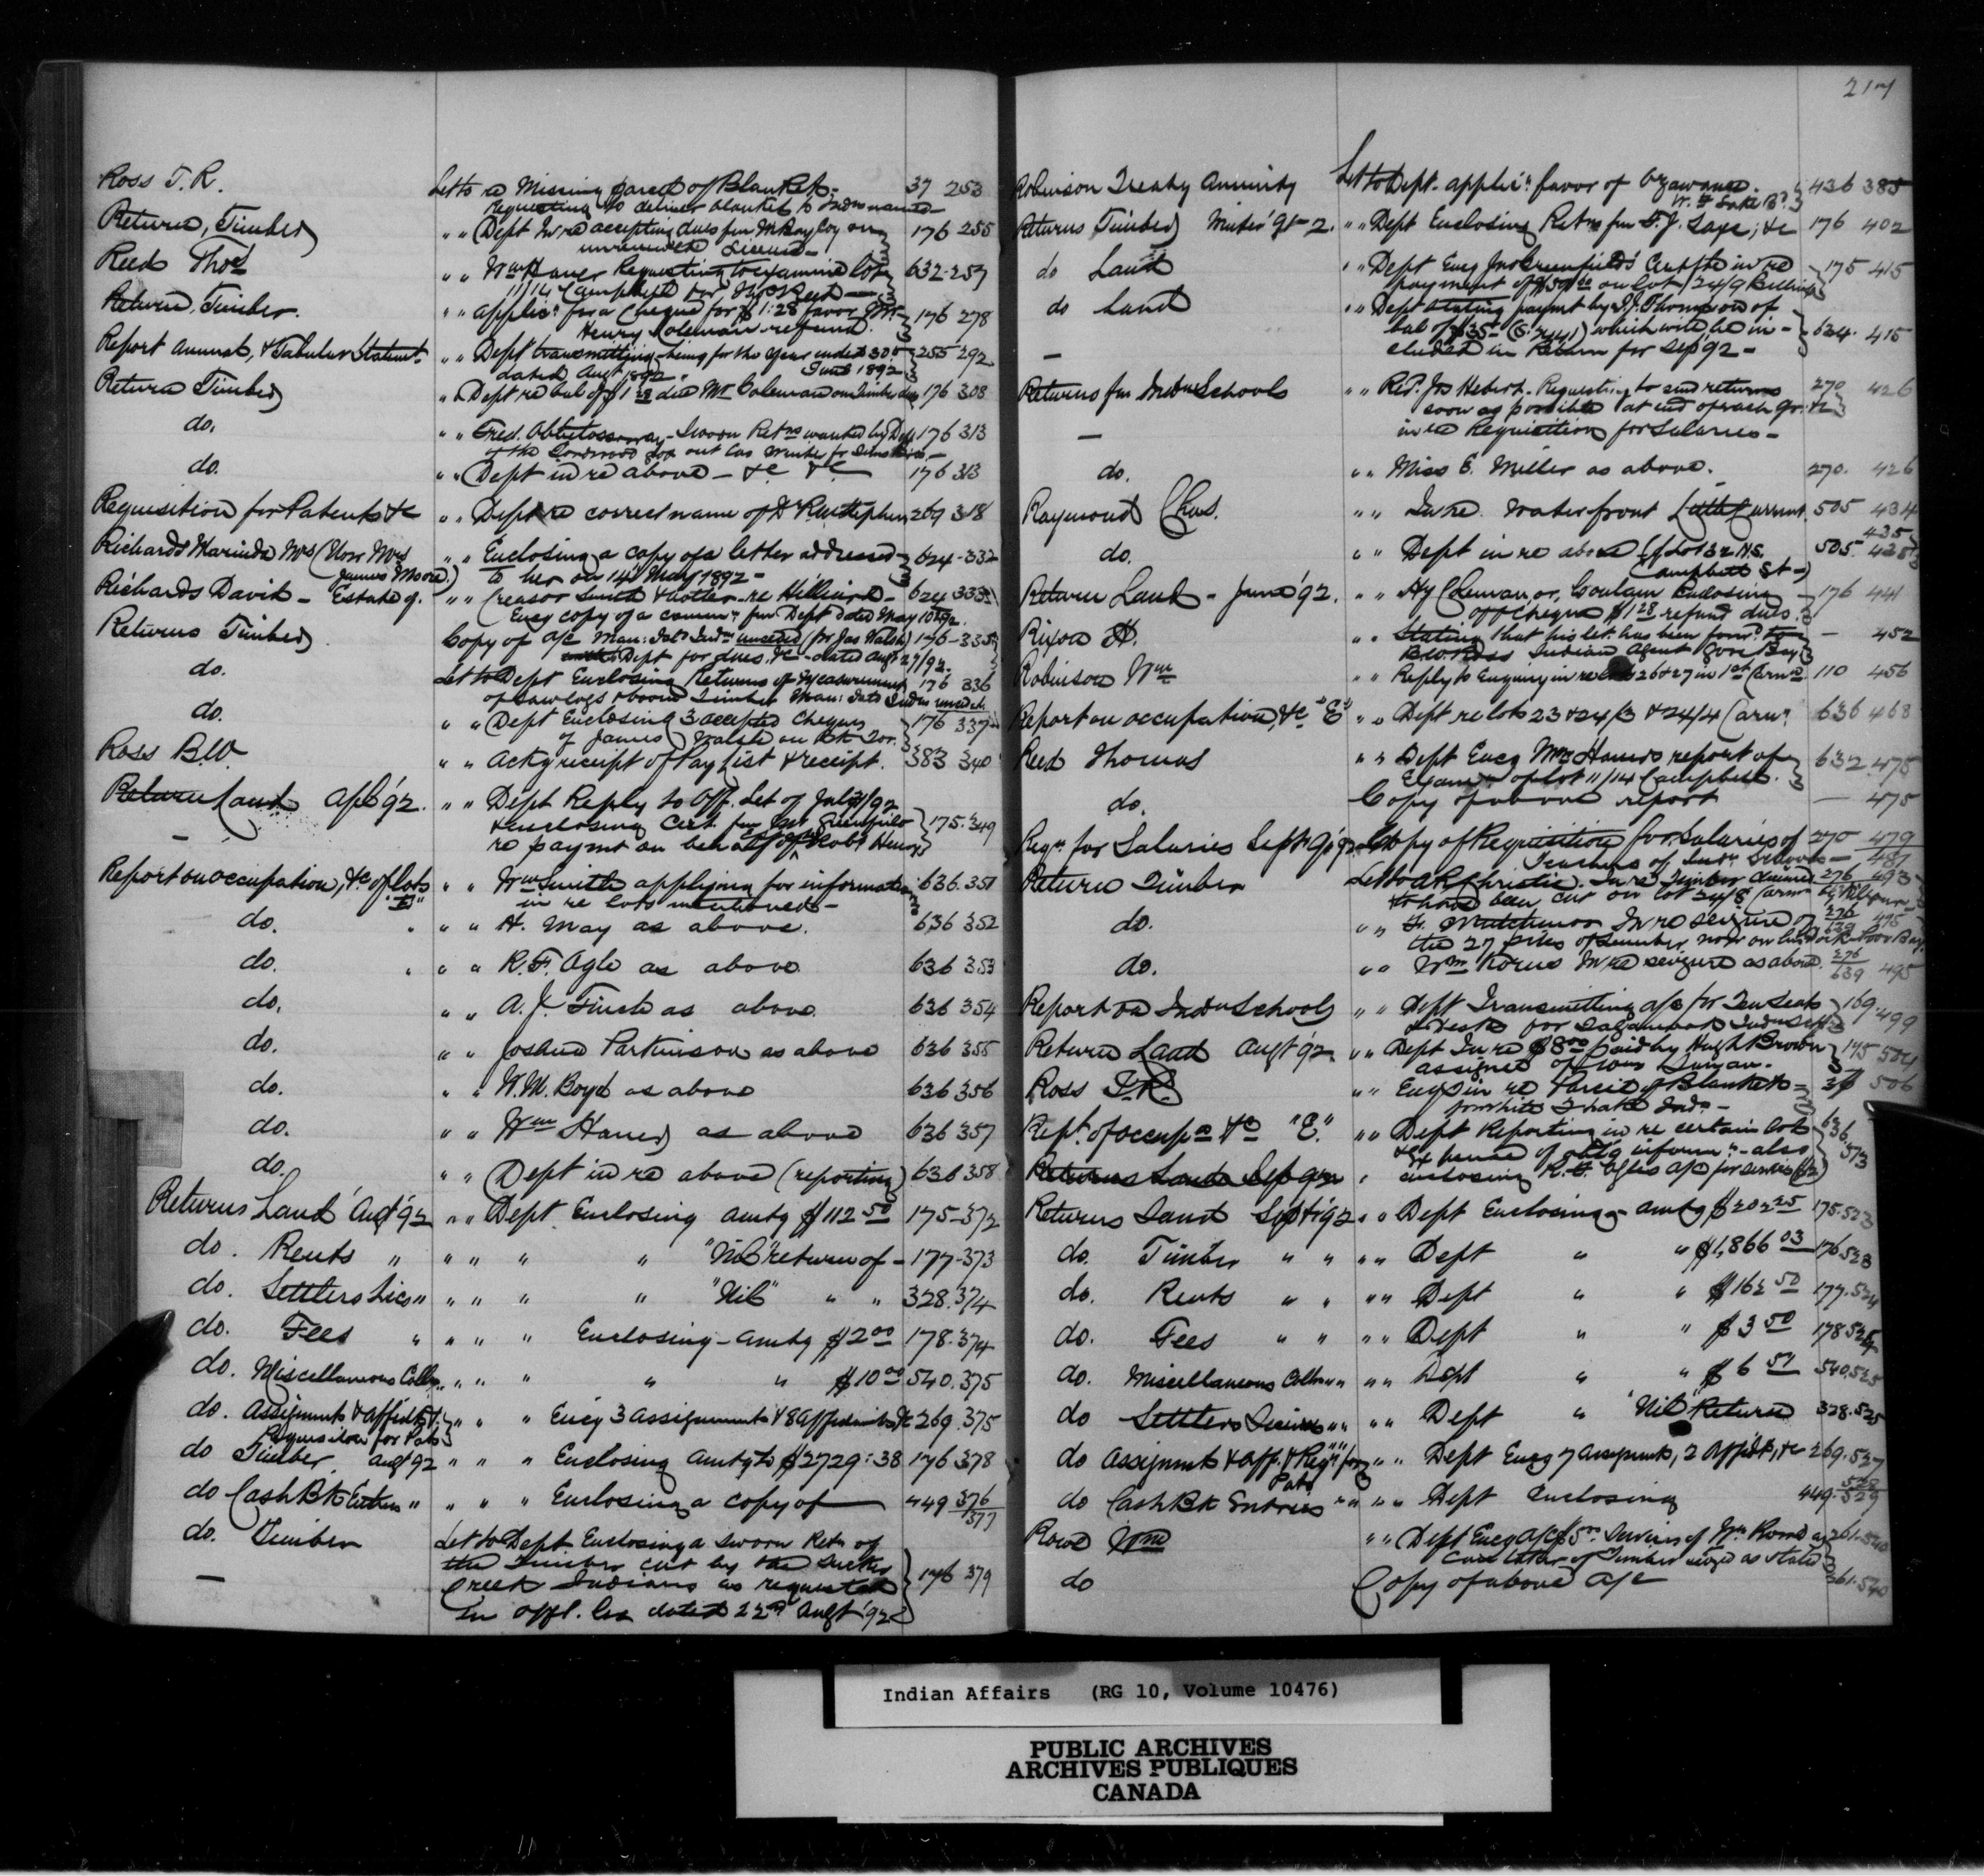 217
Ross T. R. Let to re Missing parcel of Blankets - 37 253
Requesting to deliver blanket to Indn named -
Returns, Timber " " Dept In re accepting dues fm McKay on 176 255
unrenewed License -
Reed Thos " " Wm Haner Requesting to examine lot 632-257
11/14 Campbell for Thos Reed -
Return, Timber. " " Applicn for a Cheque for $1.28 favor Mr. 176 278
Henry Coleman refund.
Report Annual, & Tabular Statmt. " " Dept transmitting - being for the year ended 30th 255 292
dated Augt 1892. June 1892
Return Timber " " Dept re bal of $1 28 due Mr Coleman on Timber dues 176 308
do. " " Fred. - Sworn Retns wanted by Dept 176 313
of the out las winter
do. " " Dept in re above - &c &c 176 313
Requisition for Patents &c " " Dept re correct name of 269 318
Richards Marinda Mrs (Now Mrs " " Enclosing a copy of a letter addressed 624-332
James Moore) to her on 14 May 1892 -
Richards David - Estate of. " " Creasor Smith & Notter - re Hilliard - 624 333
Encg copy of a commn fm Dept dated May 10th 92.
Returns Timber Copy of a/c Man: Isld Indn unceded (fm Jas Walsh) 176-335
Dept for dues, &c - dated Augt 27/92.
do. Let to Dept Enclosing Returns of Measurement 176 336
of saw logs & boom Timber Man: Isld Indn unceded
do. " " Dept Enclosing 3 accepted Cheques 176 337
of James Walsh on Bk Tor.
Ross B.W. " " Ackg receipt of Pay List & receipt. 383 340
Return Land Apl '92. " " Dept Reply to Off. Let of July /92
& enclosing Cert. fm Jno Greenfield 175-349
- re paymt on behalf of Robt Henry
Report on occupation, &c of lots " " Wm Smith applying for information 636.351
"E" in re lots mentioned -
do. " " H. May as above. 636 352
do. " " R. F. Ogle as above 636 353
do. " " A. J. Finch as above. 636 354
do. " " Joshua Parkinson as above 636 355
do. " " W. M. Boyd as above 636 356
do. " " Wm Haner as above 636 357
do. " " Dept in re above (reporting) 636 358
Returns Land Augt '92 " " Dept Enclosing amtg $112 50 175-372
do. Rents " " " " " "Nil" return of - 177-373
do. Settlers Lics " " " " " "Nil" " " 328.374
do. Fees " " " " Enclosing - amtg $2 00 178.374
do. Miscellaneous Colls " " " " " $10 00 540.375
do. Assignments & Affidts & " " " Encg 3 Assignments & 8 Affidavits &c 269.375
Requisition for Pats
do Timber Augt 92 " " " Enclosing amtg to $2729:38 176 378
do Cash Bk Entries " " " " Enclosing a copy of 449 376
377
do. Timber Let to Dept Enclosing a sworn Retn of
the Timber cut by the Sucker
- Creek Indians as requested 176 379
in offl. Let dated 22nd Augt '92
Robinson Treaty Annuity Let to Dept. applicn favor of 436 385
W. F. Lake Bd.
Returns Timber Winter 91-2. " " Dept Enclosing Retns fm T. J. &c 176 402
do Land " " Dept Encg Jno Greenfields' Certfte in re 175 415
payment of $50 00 on lot 24/9 Billings
do Land " " Dept stating paymt by Thompson of
bal of $35 - which will be in - 634. 415
- cluded in Return for Sep '92 -
Returns fm Indn Schools " " Rev. Jos Hebert. Requesting to send returns 270 426
soon as possible at end of each Qr. &c
- in re Requisition for Salaries -
do. " " Miss E. Miller as above. 270. 426
Raymond Chas. " " In re. Waterfront Little Current. 505 434
435
do. " " Dept in re above of Lot 32 N.S. 505. 435
Campbell St -
Return Land - June '92. " " Hy Coleman or, Goulais Enclosing 176 441
off Cheque $1 28 refund dues.
Rixon A. " " Stating that his let. has been forwd to - 452
B.W. Ross Indian Agent Gore Bay
Robinson Wm " " Reply to Enquiry in re lots 26 & 27 in 1st Carnn 110 456
Report on occupation, &c "E" " " Dept re lots 23 & 24/3 & 24/4 Carnn 636 468
Reed Thomas " " Dept Encg Wm Haners report of 632 475
Examn of lot 11/14 Campbell.
do. Copy of above report - 475
Reqn for Salaries Sept Qr 92 Copy of Requisition for Salaries of 270 479
Teachers of Indn Schools - 481
Return Timber Let to A R Christie. In re Timber claimed 276 493
to have been cut on lot 24/5 Carnn
do. " " In re seizure of 276 495
the 27 piles of Lumber now on 639
do. " " Wm In re seizure as above. 276
639 495
Report on Indn Schools " " Dept Transmitting a/c for Ten Seats 169 499
& Desks for Indn School
Return Land Augt 92 " " Dept In re $8 00 paid by Hugh Brown 175 504
assignee of Duncan.
Ross T. R. " " Encg in re Parcel of Blankets 37 506
for White Lake Indn -
Rept. of occupn &c "E." " " Dept Reporting in re certain lots 636.513
& expense of obtg informn - also
Returns Lands Sep 92 " enclosing R. F. Ogles a/c for services
Returns Land Sept '92 " " Dept Enclosing amtg $202 25 175.523
do. Timber " " " " Dept " " $1,866 03 176.523
do. Rents " " " " Dept " " $162 50 177.524
do. Fees " " " " Dept " " $3 50 178 524
do. Miscellaneous Colls " " " " Dept " " $6 51 540.525
do Settlers Licenses " " " " Dept " "Nil" Return 328.525
do Assignmts & Aff. & Reqn for " " Dept Encg 7 Assignmts, 2 Affidts, &c 269.527
Pats
do Cash Bk Entries " " " " Dept Enclosing 449. 528
529
Rowe Wm " " Dept Encg a/c $5 00 Services of Wm Rowe as 261.540
Care taker of Timber seized as stated
do Copy of above a/c 261.540
Indian Affairs (RG 10, Volume 10476)
PUBLIC ARCHIVES
ARCHIVES PUBLIQUES
CANADA